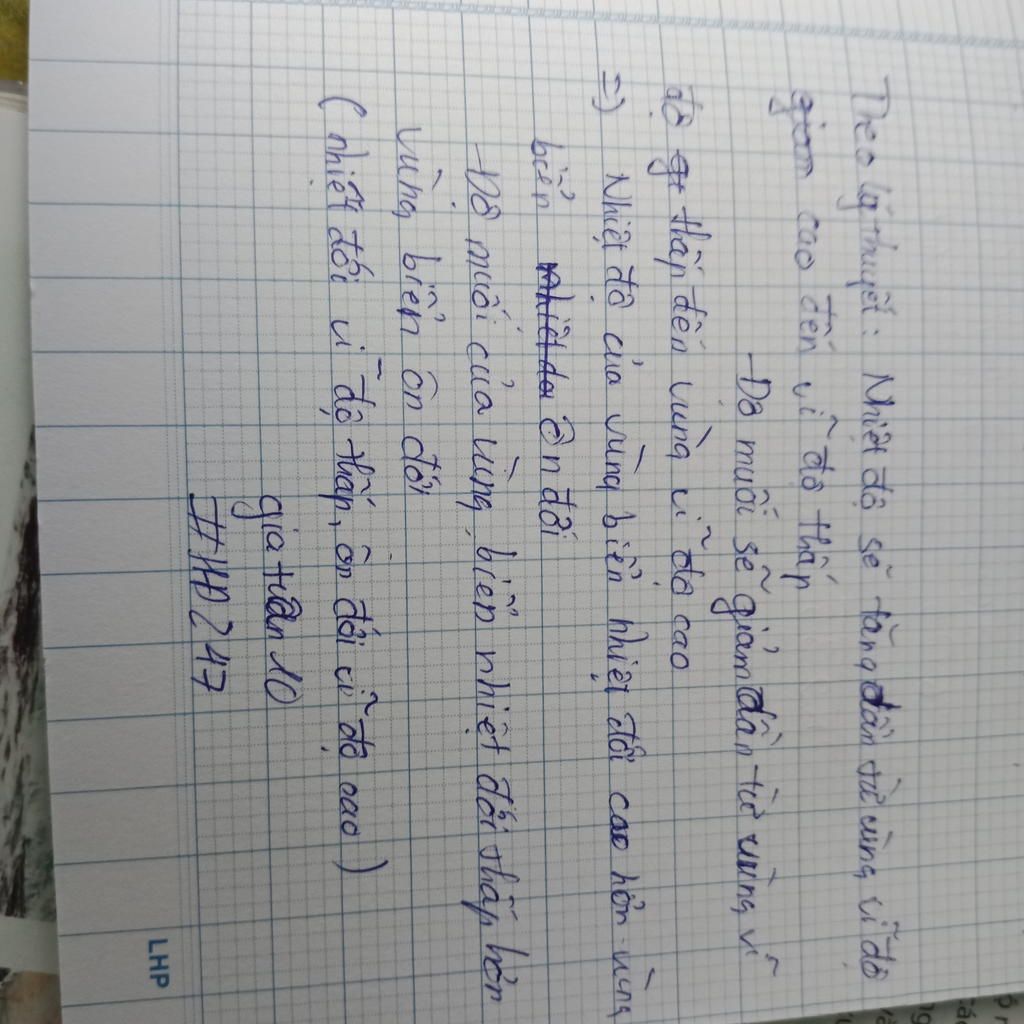 Theo lý thuyết: Nhiệt độ sẽ tăng dần từ vùng vĩ độ
giam cao đến vĩ độ thấp
-Độ muối sẽ giảm dần từ vùng vĩ
độ gi thấp đến vùng vĩ độ cao
=) Nhiệt độ của vùng biển nhiệt đới cao hơn vùng
biển nhiệt đới ôn đới
-Độ muối của vùng biển nhiệt đới thấp hơn
vùng biển ôn đới
( nhiệt đới vĩ độ thấp, ôn đới vĩ độ cao )
gia tuân 10
#HĐ247
LHP